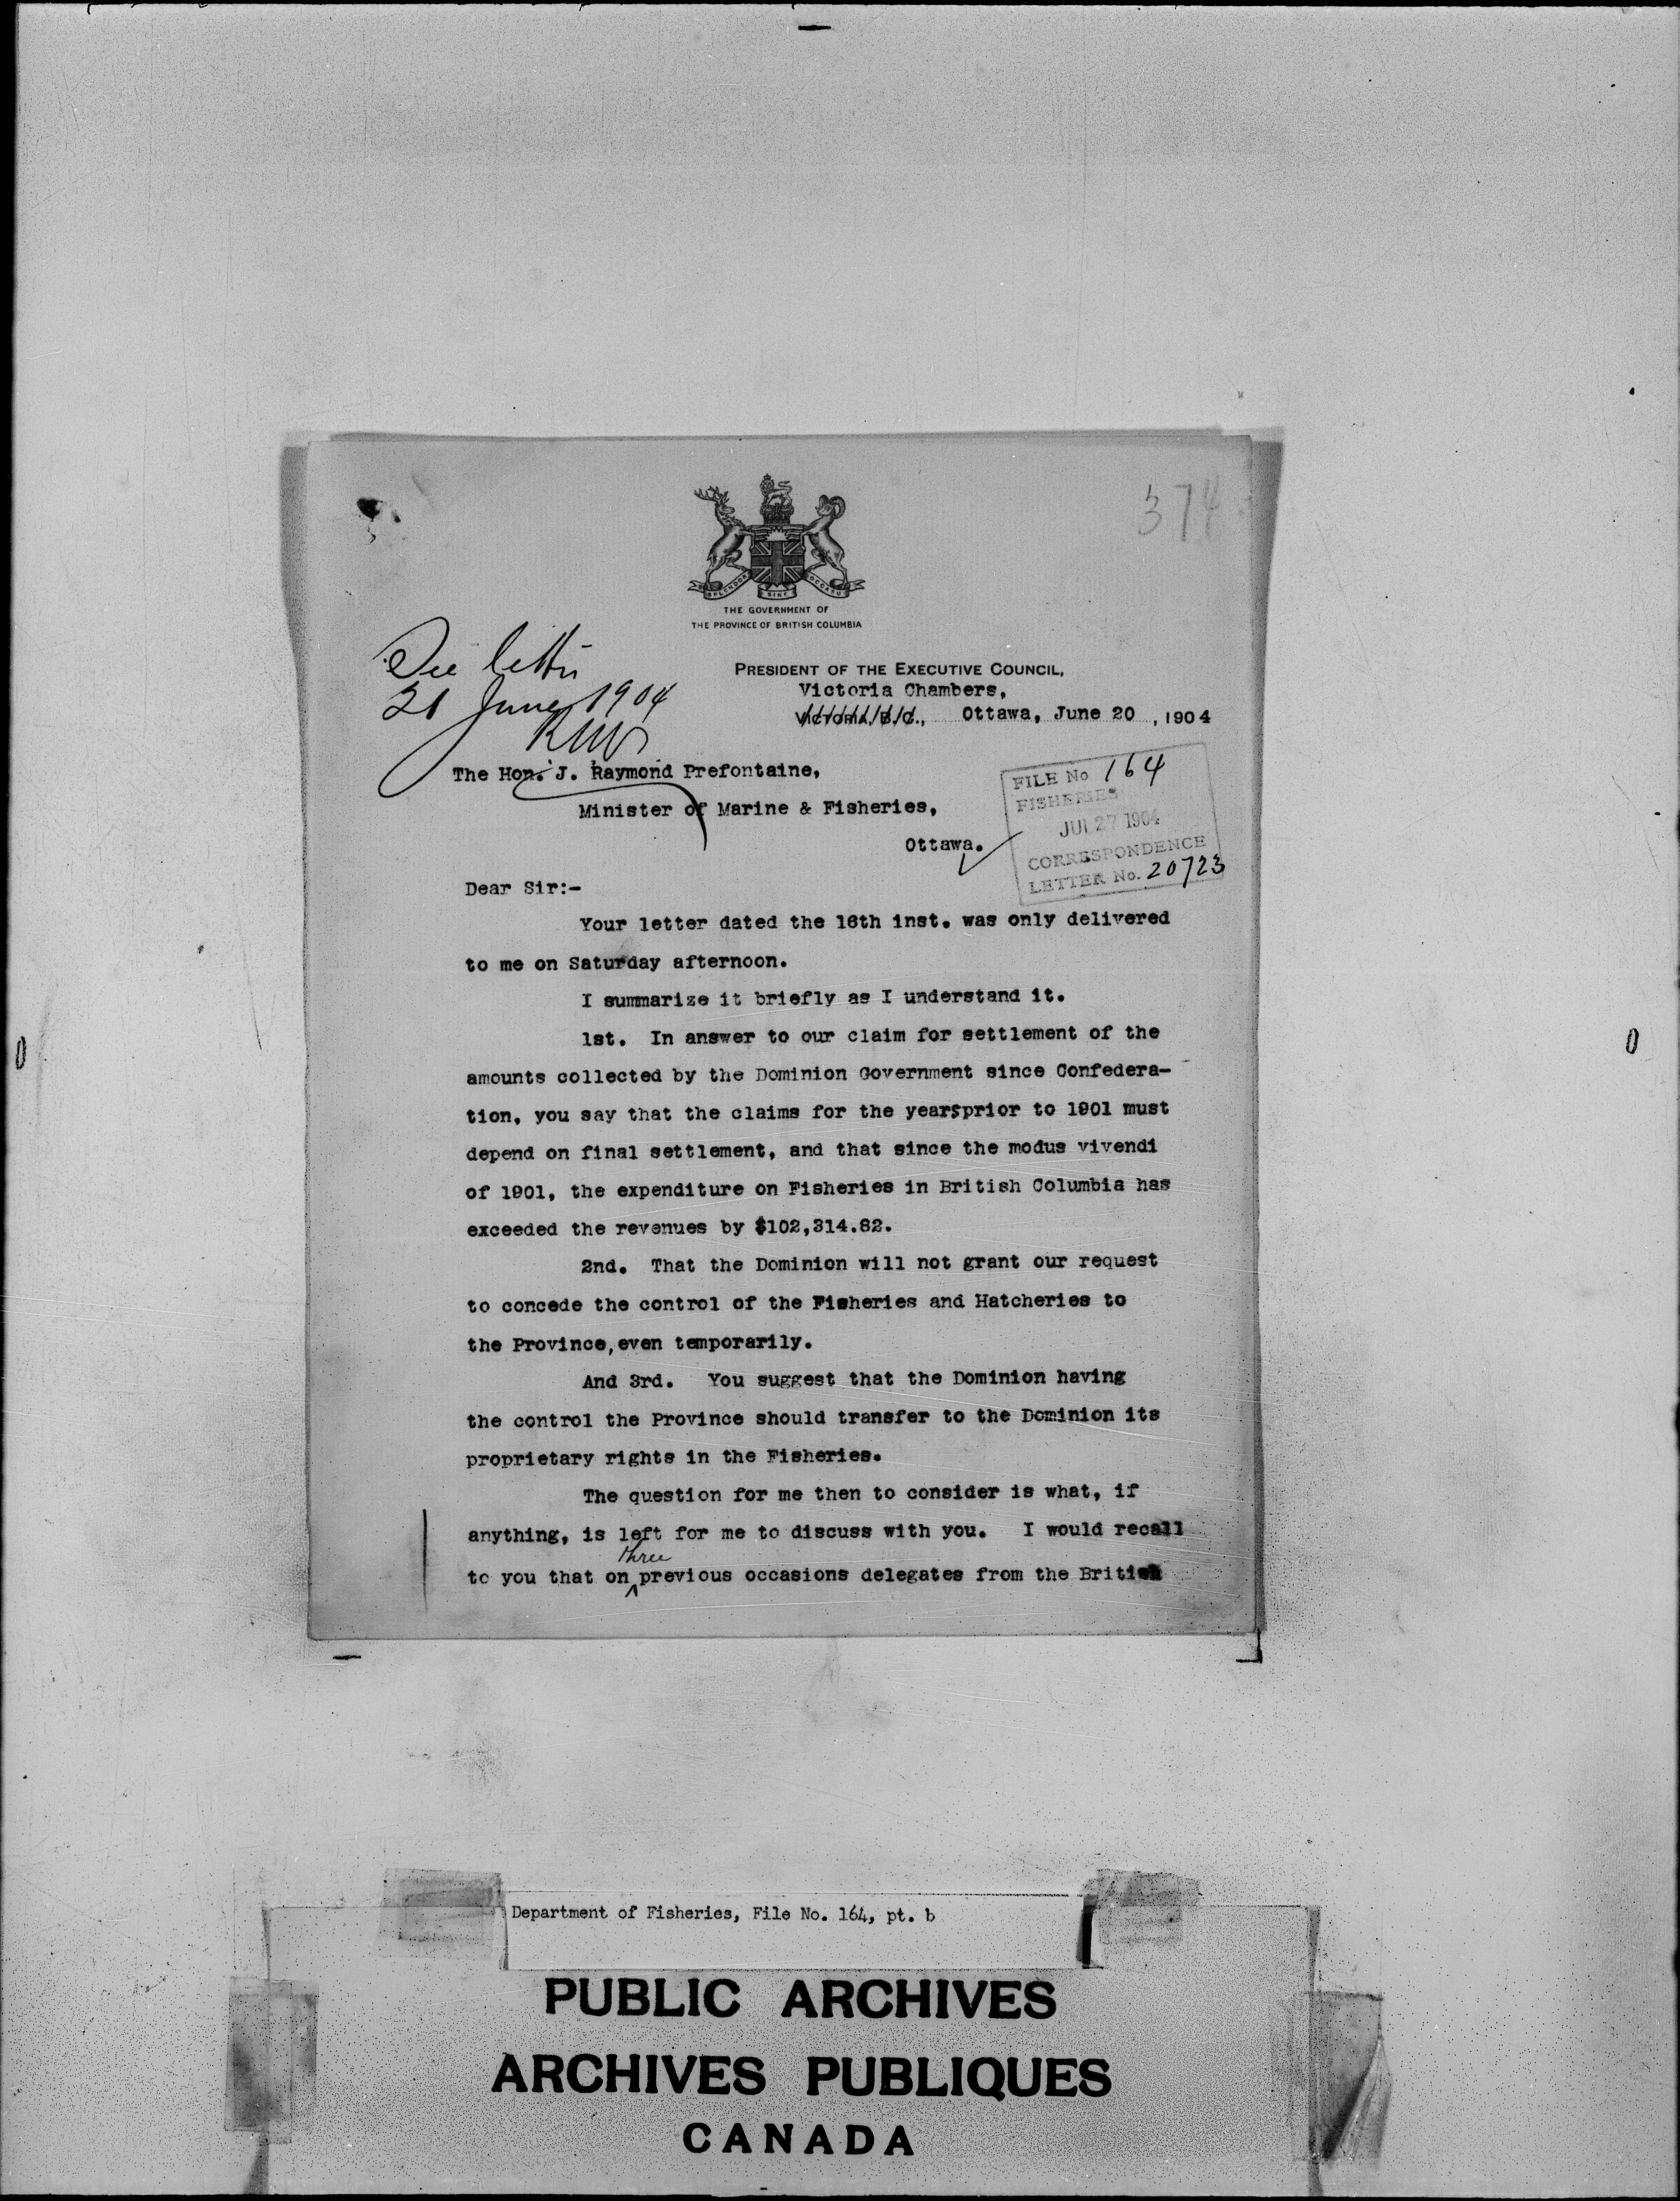 374
SPLENDOR SINE OCCASU
THE GOVERNMENT OF
THE PROVINCE OF BRITISH COLUMBIA
See letter
21 June 1904
PRESIDENT OF THE EXECUTIVE COUNCIL,
Victoria Chambers,
Victoria, B.C., Ottawa, June 20, 1904
The Hon. J. Raymond Prefontaine,
Minister of Marine & Fisheries,
Ottawa.
FILE No 164
FISHERIES
JUL 27 1904
CORRESPONDENCE
LETTER No. 20723
Dear Sir:-
Your letter dated the 16th inst. was only delivered
to me on Saturday afternoon.
I summarize it briefly as I understand it.
1st. In answer to our claim for settlement of the
amounts collected by the Dominion Government since Confedera-
tion, you say that the claims for the years prior to 1901 must
depend on final settlement, and that since the modus vivendi
of 1901, the expenditure on Fisheries in British Columbia has
exceeded the revenues by $102,314.82.
2nd. That the Dominion will not grant our request
to concede the control of the Fisheries and Hatcheries to
the Province, even temporarily.
And 3rd. You suggest that the Dominion having
the control the Province should transfer to the Dominion its
proprietary rights in the Fisheries.
The question for me then to consider is what, if
anything, is left for me to discuss with you. I would recall
to you that on three previous occasions delegates from the British
Department of Fisheries, File No. 164, pt. b
PUBLIC ARCHIVES
ARCHIVES PUBLIQUES
CANADA